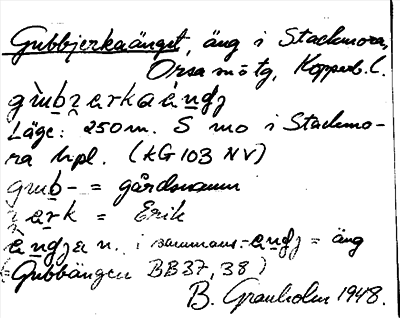 Gubbjerkaänget, äng i Stackmora,
Orsa sn o tg, Kopparb. l.
Läge: 250 m. S mo i Stackmo-
ra hpl. (KG 103 NV)
gu̱ḇ- = gårdsnamn
= Erik
n. i sammans. = äng
(Gubbängen BB37, 38)
B. Granholm 1948.